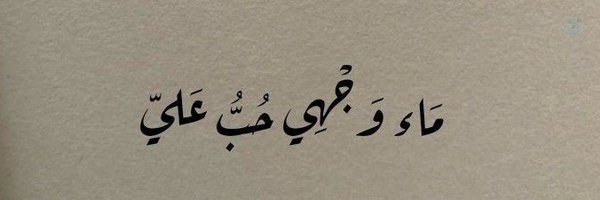 مَاء وَجْهِي حُبُّ عَليّ